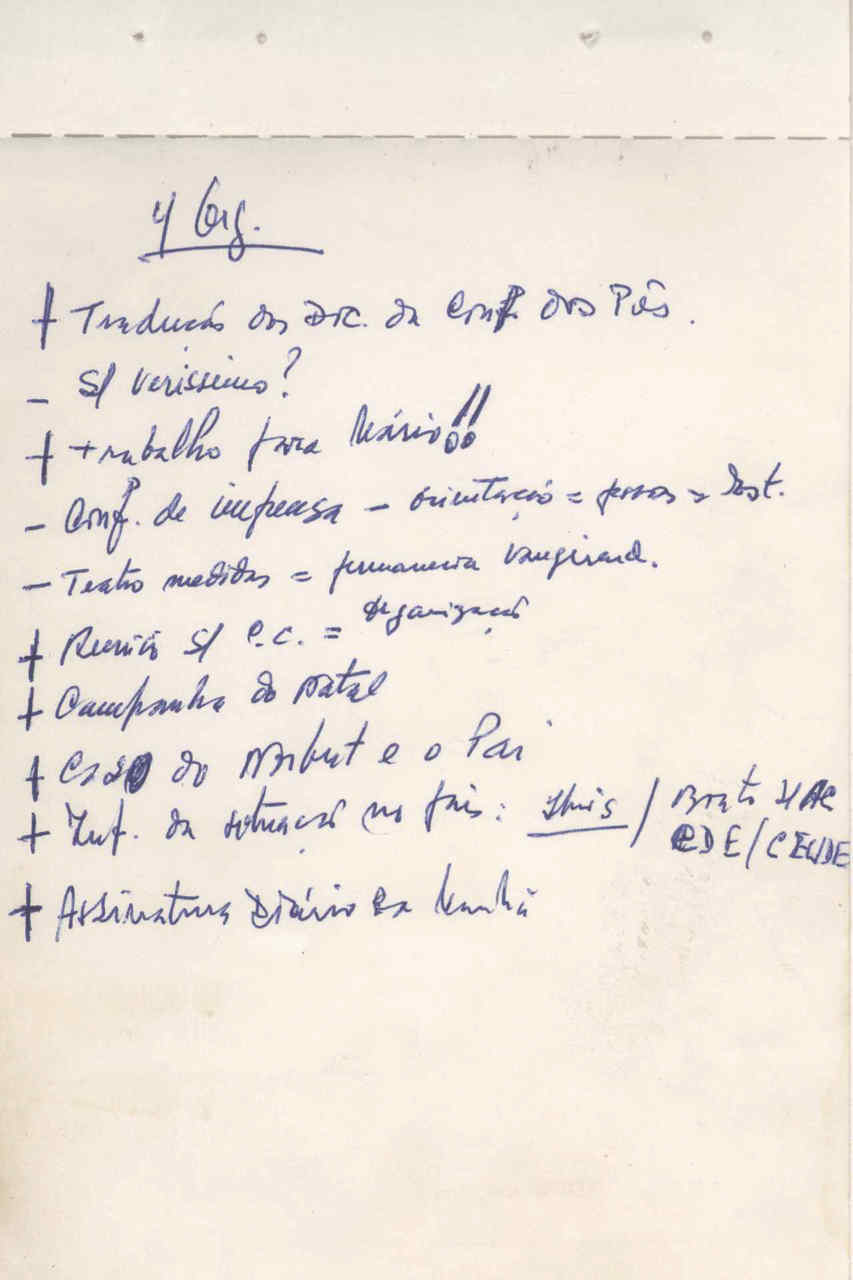 4 Org.
+ Tradução dos Doc. da Conf. dos Pᵒˢ.
- S/ Verissimo?
+ + trabalho para Mário!!
- Conf. de imprensa - orientação =
- Teatro medidas =
+ Reunião S/ C.C. = organização
+ Campanha do Natal
+ Caso do Norbert e o Pai
+ Inf. da situação no país: /
CDE/CEUDE
+ Assinatura Diário da Manhã